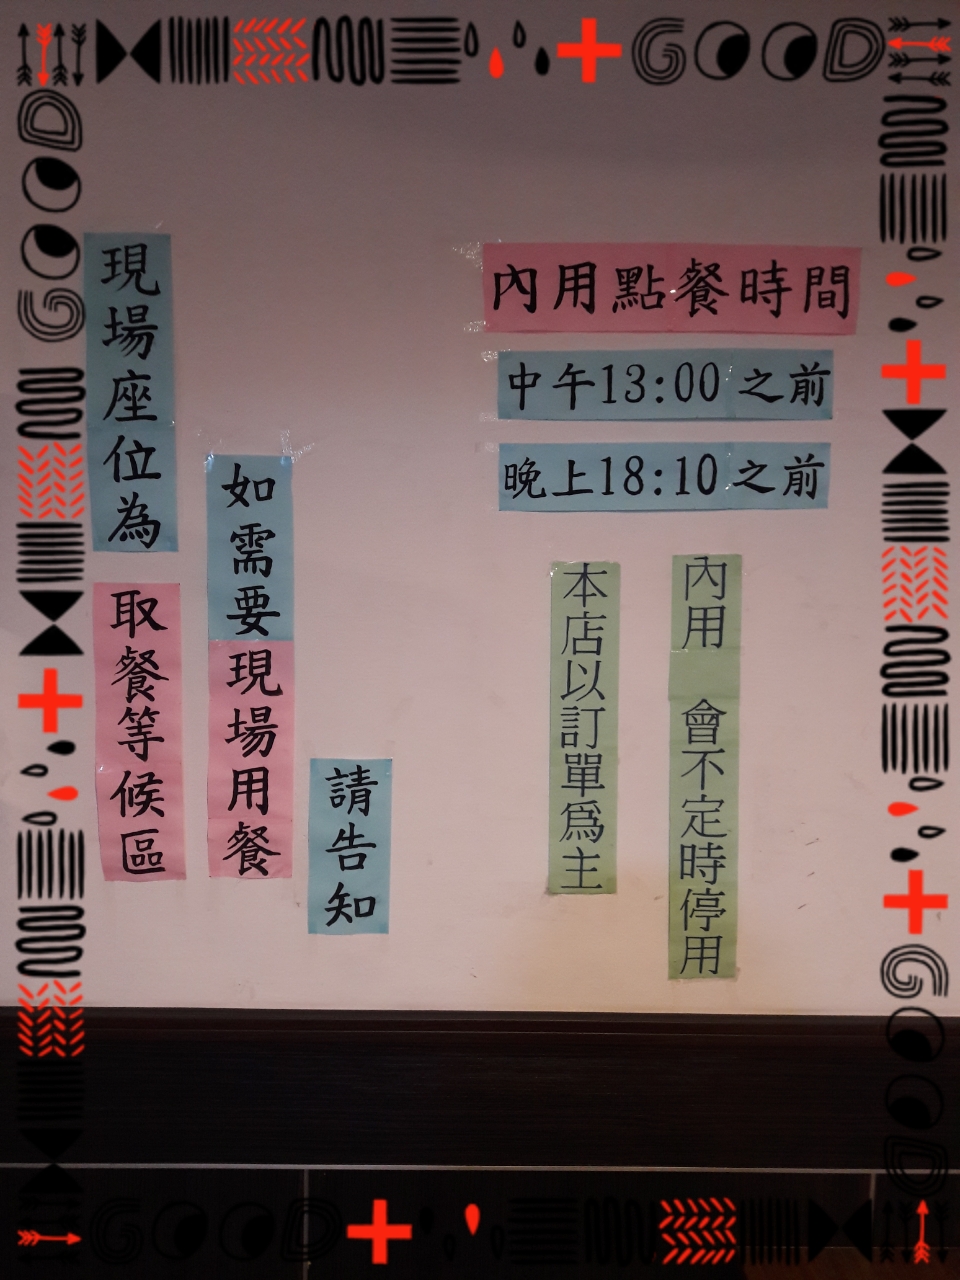 GOOD
GOOD
內用點餐時間
中午13:00之前
晚上18:10之前
內用 會不定時停用
本店以訂單為主
現場座位為
取餐等候區
如需要現場用餐
請告知
GOOD
GOOD